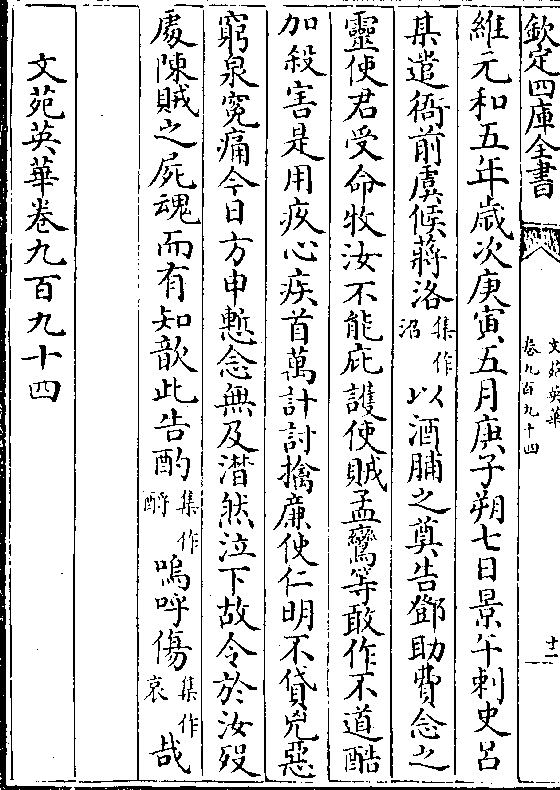 欽定四庫全書
文苑英華
卷九百九十四
十一
維元和五年歲次庚寅五月庚子朔七日景午刺史呂
某遣衙前虞候蔣洛集作沼以酒脯之奠告鄧助費念之
靈使君受命牧汝不能庇護使賊孟鸞等敢作不道酷
加殺害是用疚心疾首萬計討擒廉使仁明不貸兇惡
窮泉寃痛今日方申慙念無及潸然泣下故令於汝殁
處陳賊之屍魂而有知歆此告酌集作酹嗚呼傷集作哀哉
文苑英華卷九百九十四